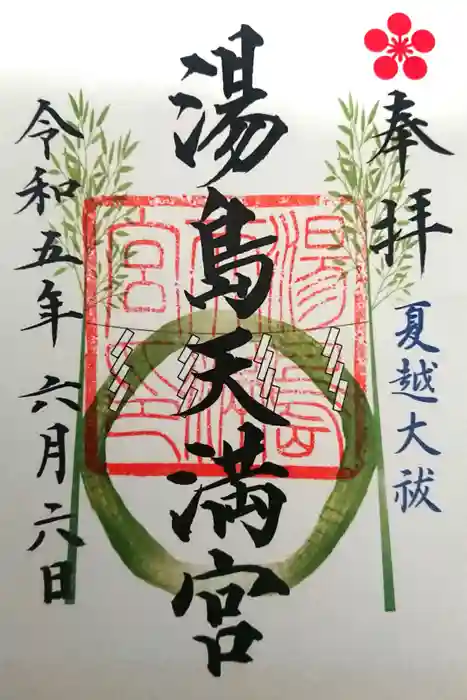 奉拝
夏越大祓
湯島天満宮
令和五年六月六日